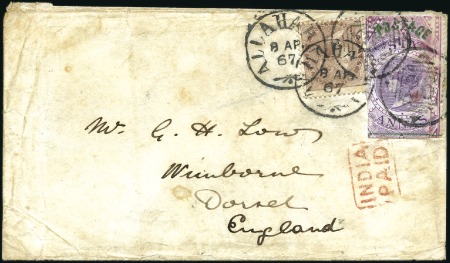 ALLAHABAD
8 AP
67
8 AP
67
POSTAGE
ANNAS
Mr. G. H. Low
Wimborne
Dorset
England
INDIA
PAID